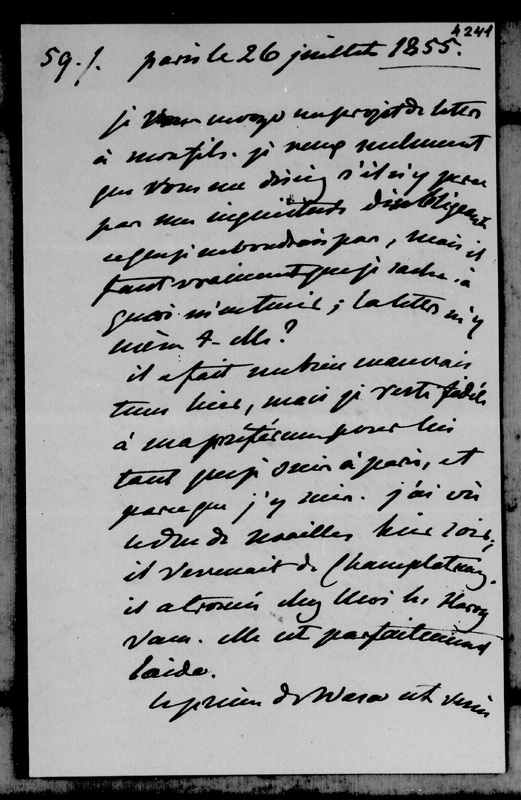 4241
59./. paris le 26 juillet 1855.
je vous envoye un projet de lettre
à mon fils. je veux seulement
que vous me disiez s'il n'y perce
pas une inquiétude désobligeante
ce que je ne voudrais pas, mais il
faut vraiment que je sache à
quoi m'en tenir; la lettre m'y
mène t-elle?
il a fait un bien mauvais
tems hier, mais je reste fidèle
à ma préférence pour lui
tant que je suis à paris, et
parceque j'y suis. j'ai vu
le duc de Noailles hier soir,
il revenait de Champlatreux.
il a trouvé chez moi la Harry
Vane. elle est parfaitement
laide.
le prince de Wasa est venu